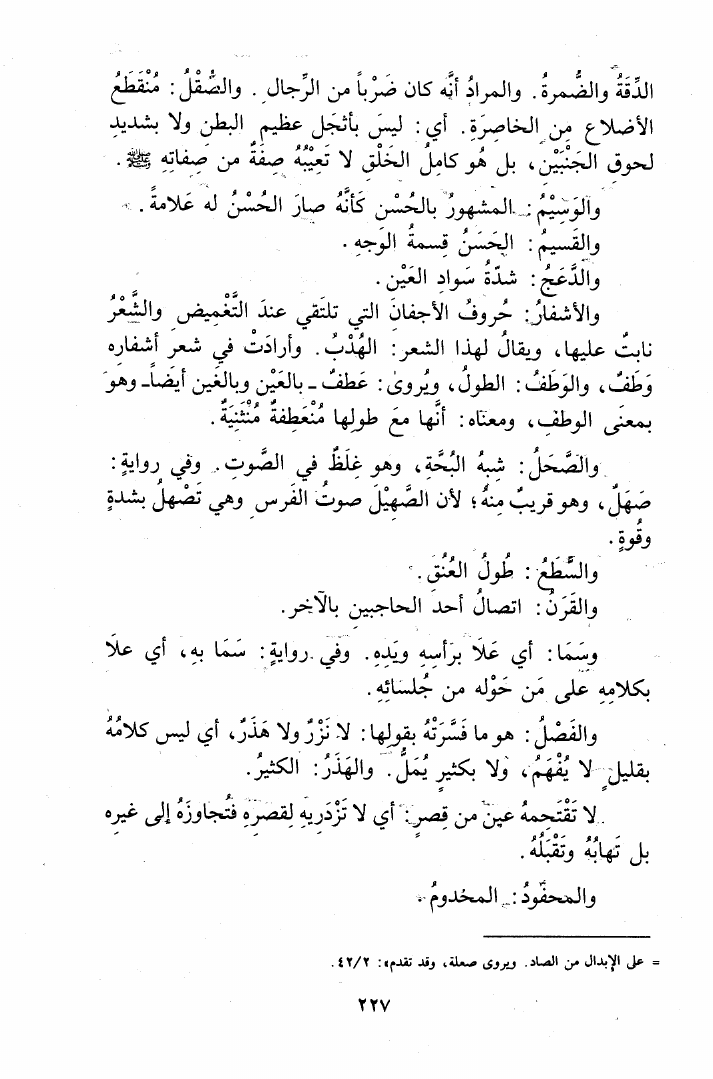 الدِّقَةُ والضُّمرةُ. والمرادُ أنَّه كان ضَرْباً من الرِّجال. والصُّقْلُ: مُنْقَطَعُ
الأضلاع من الخاصِرَةِ. أي: ليسَ بأثجَل عظيم البطن ولا بشديدِ
لحوق الجَنْبَيْن، بل هُو كامِلُ الخَلْقِ لا تَعِيْبُهُ صِفَةٌ من صِفاتِهِ ﷺ.
والوَسِيْمُ: المشهورُ بالحُسْن كَأنَّهُ صارَ الحُسْنُ له عَلامةً.
والقَسيمُ: الحَسَنُ قِسمةُ الوَجهِ.
والدَّعَجُ: شدّةُ سَوادِ العَيْن.
والأشفارُ: حُروفُ الأجفانَ التي تلتَقي عندَ التَّغْميضِ والشَّعْرُ
نابتٌ عليها، ويقالُ لهذا الشعر: الهُدْبُ. وأرادَتْ في شعر أشفاره
وَطَفٌ، والوَطَفُ: الطولُ، ويُروىٰ: عَطفٌ ـ بالعَيْن وبالغَين أيضاً ـ وهوَ
بمعنَى الوطفِ، ومعنَاه: أنَّها معَ طولِها مُنْعَطِفةٌ مُنْثَنِيَةٌ.
والصَّحَلُ: شِبهُ البُحَّةِ، وهو غِلَظٌ في الصَّوتِ. وفي روايةٍ:
صَهَلٌ، وهو قريبٌ مِنهُ؛ لأن الصَّهِيْلَ صوتُ الفَرسِ وهي تَصْهلُ بشدةٍ
وقُوةٍ.
والسَّطَعُ: طُولُ العُنُقِ.
والقَرَنُ: اتصالُ أحدَ الحاجبينِ بالآخرِ.
وسَمَا: أي عَلَا برَأسِهِ ويَدِهِ. وفي روايةٍ: سَمَا بِهِ، أي علَا
بكلامِهِ على مَن حَوْله من جُلسائِهِ.
والفَصْلُ: هو ما فَسَّرَتْهُ بقولِها: لا نَزْرٌ ولا هَذَرٌ، أي ليس كلامُهُ
بقليلٍ لا يُفْهَمُ، ولا بكثيرٍ يُمَلُّ. والهَذَرُ: الكثيرُ.
لا تَقْتَحِمهُ عينٌ من قِصرٍ: أي لا تَزْدَرِيهِ لِقصَرِهِ فَتُجاوزَهُ إلى غيرِه
بل تَهابُهُ وتَقْبَلُهُ.
والمحفودُ: المخدومُ.
= على الإبدال من الصاد. ويروى صعلة، وقد تقدم»: ٤٢/٢.
٢٢٧